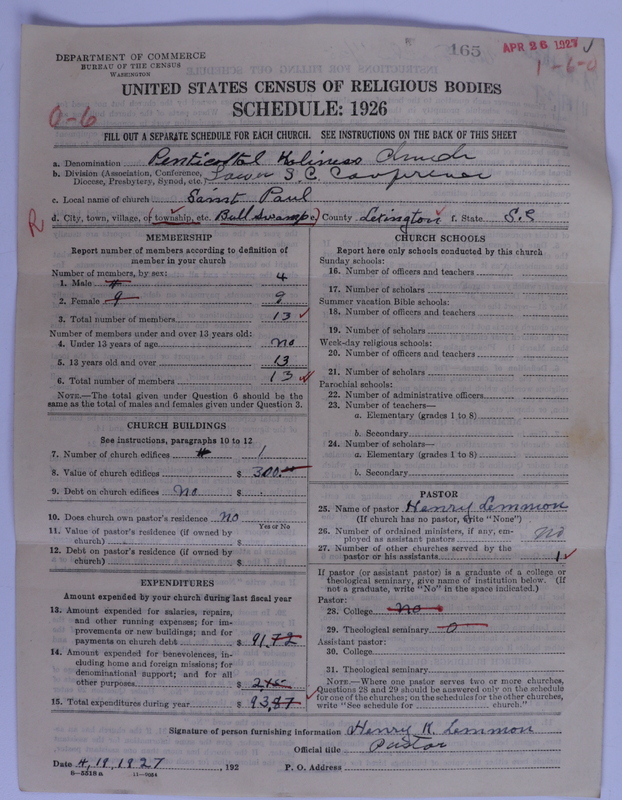 165
APR 26 1927
1-6-0
DEPARTMENT OF COMMERCE
BUREAU OF THE CENSUS
WASHINGTON
UNITED STATES CENSUS OF RELIGIOUS BODIES
0-6
SCHEDULE: 1926
FILL OUT A SEPARATE SCHEDULE FOR EACH CHURCH. SEE INSTRUCTIONS ON THE BACK OF THIS SHEET
a. Denomination Penticostal Holiness Church
b. Division (Association, Conference, Lower S.C. Conference
Diocese, Presbytery, Synod, etc.)
c. Local name of church Saint Paul
R
d. City, town, village, or township, etc. (Bull Swamp) County Lexington f. State S.C
MEMBERSHIP
Report number of members according to definition of
member in your church
Number of members, by sex:
1. Male 4
2. Female 9 9
3. Total number of members 13
Number of members under and over 13 years old:
4. Under 13 years of age no
5. 13 years old and over 13
6. Total number of members 13
NOTE.—The total given under Question 6 should be
same as the total of males and females given under Question 3.
CHURCH BUILDINGS
See instructions, paragraphs 10 to 12
7. Number of church edifices 1
8. Value of church edifices $ 300.00
9. Debt on church edifices no $
10. Does church own pastor's residence no
Yes or No
11. Value of pastor's residence (if owned by
church) $
12. Debt on pastor's residence (if owned by
church) $
EXPENDITURES
Amount expended by your church during last fiscal year
13. Amount expended for salaries, repairs,
and other running expenses; for im-
provements or new buildings; and for
payments on church debt $ 91.72
14. Amount expended for benevolences, in-
cluding home and foreign missions; for
denominational support; and for all
other purposes $
15. Total expenditures during year $ 93.87
CHURCH SCHOOLS
Report here only schools conducted by this church
Sunday schools:
16. Number of officers and teachers
17. Number of scholars
Summer vacation Bible schools:
18. Number of officers and teachers
19. Number of scholars
Week-day religious schools:
20. Number of officers and teachers
21. Number of scholars
Parochial schools:
22. Number of administrative officers
23. Number of teachers—
a. Elementary (grades 1 to 8)
b. Secondary
24. Number of scholars—
a. Elementary (grades 1 to 8)
b. Secondary
PASTOR
25. Name of pastor Henry Lemmon
(If church has no pastor, write "None")
26. Number of ordained ministers, if any, em-
ployed as assistant pastors no
27. Number of other churches served by the
pastor or his assistants 1
If pastor (or assistant pastor) is a graduate of a college or
theological seminary, give name of institution below. (If
not a graduate, write "No" in the space indicated.)
Pastor:
28. College no
29. Theological seminary 0
Assistant pastor:
30. College
31. Theological seminary
NOTE.—Where one pastor serves two or more churches,
Questions 28 and 29 should be answered only on the schedule
for one of the churches; on the schedules for the other churches,
write "See schedule for church."
Signature of person furnishing information Henry K. Lemmon
Official title Pastor
Date 4,19,1927, 192 P. O. Address
8-5518 a 11-9084